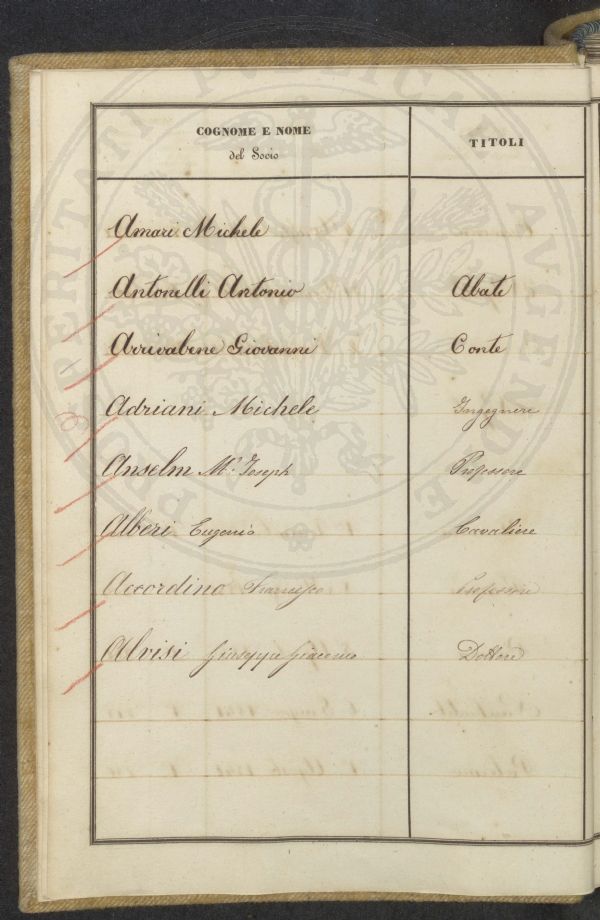 COGNOME E NOME TITOLI
del Socio
Amari Michele
Antonelli Antonio Abate
Arrivabene Giovanni Conte
Adriani Michele Ingegnere
Anselm Mr. Joseph Professore
Alberi Eugenio Cavaliere
Accordino Francesco Professore
Alvisi Giuseppe Giacomo Dottore
PRO VERITATI PUBLICAE AUGENDAE